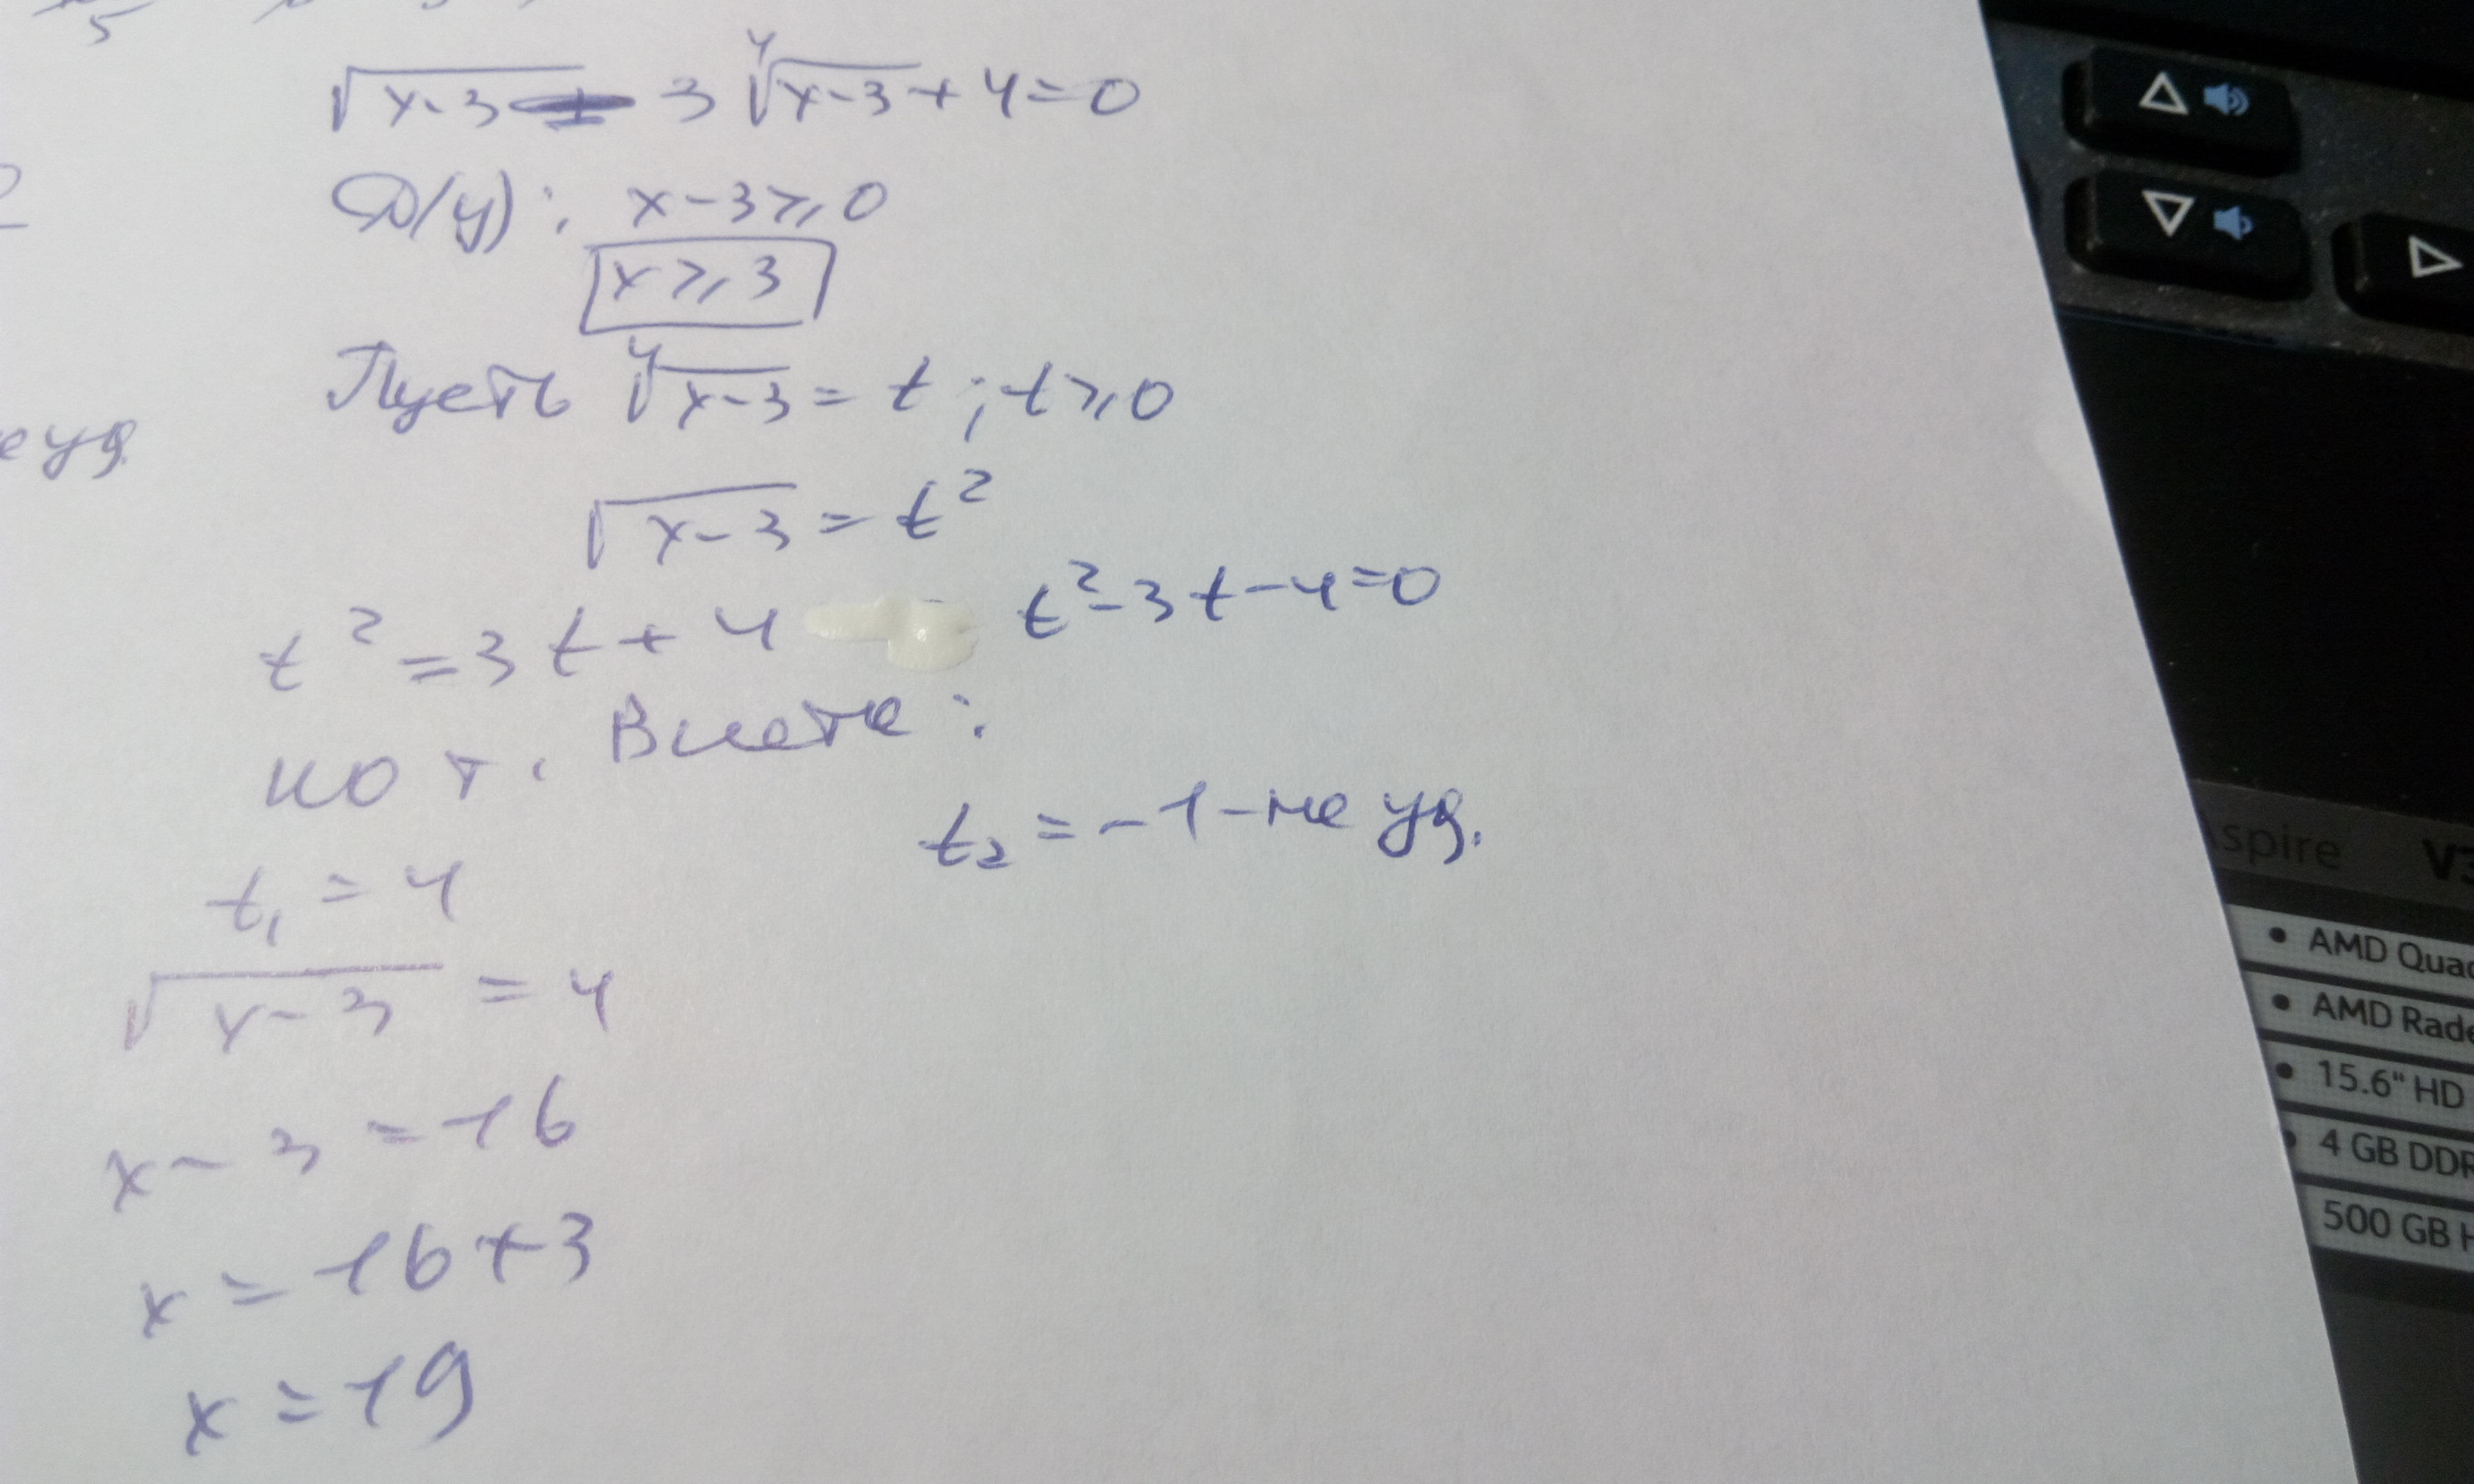 5
√x-3 = 3 ∜x-3 + 4 = 0
D(y): x-3 ⩾ 0
x ⩾ 3
Пусть ∜x-3 = t ; t ⩾ 0
еуд
√x-3 = t²
t² = 3t + 4 t²-3t-4=0
по т. Виета:
t₂ = -1 - не уд.
t₁ = 4
√x-3 = 4
x-3 = 16
x = 16+3
x = 19
Aspire V3
• AMD Quad
• AMD Rade
• 15.6" HD
• 4 GB DDR
500 GB H